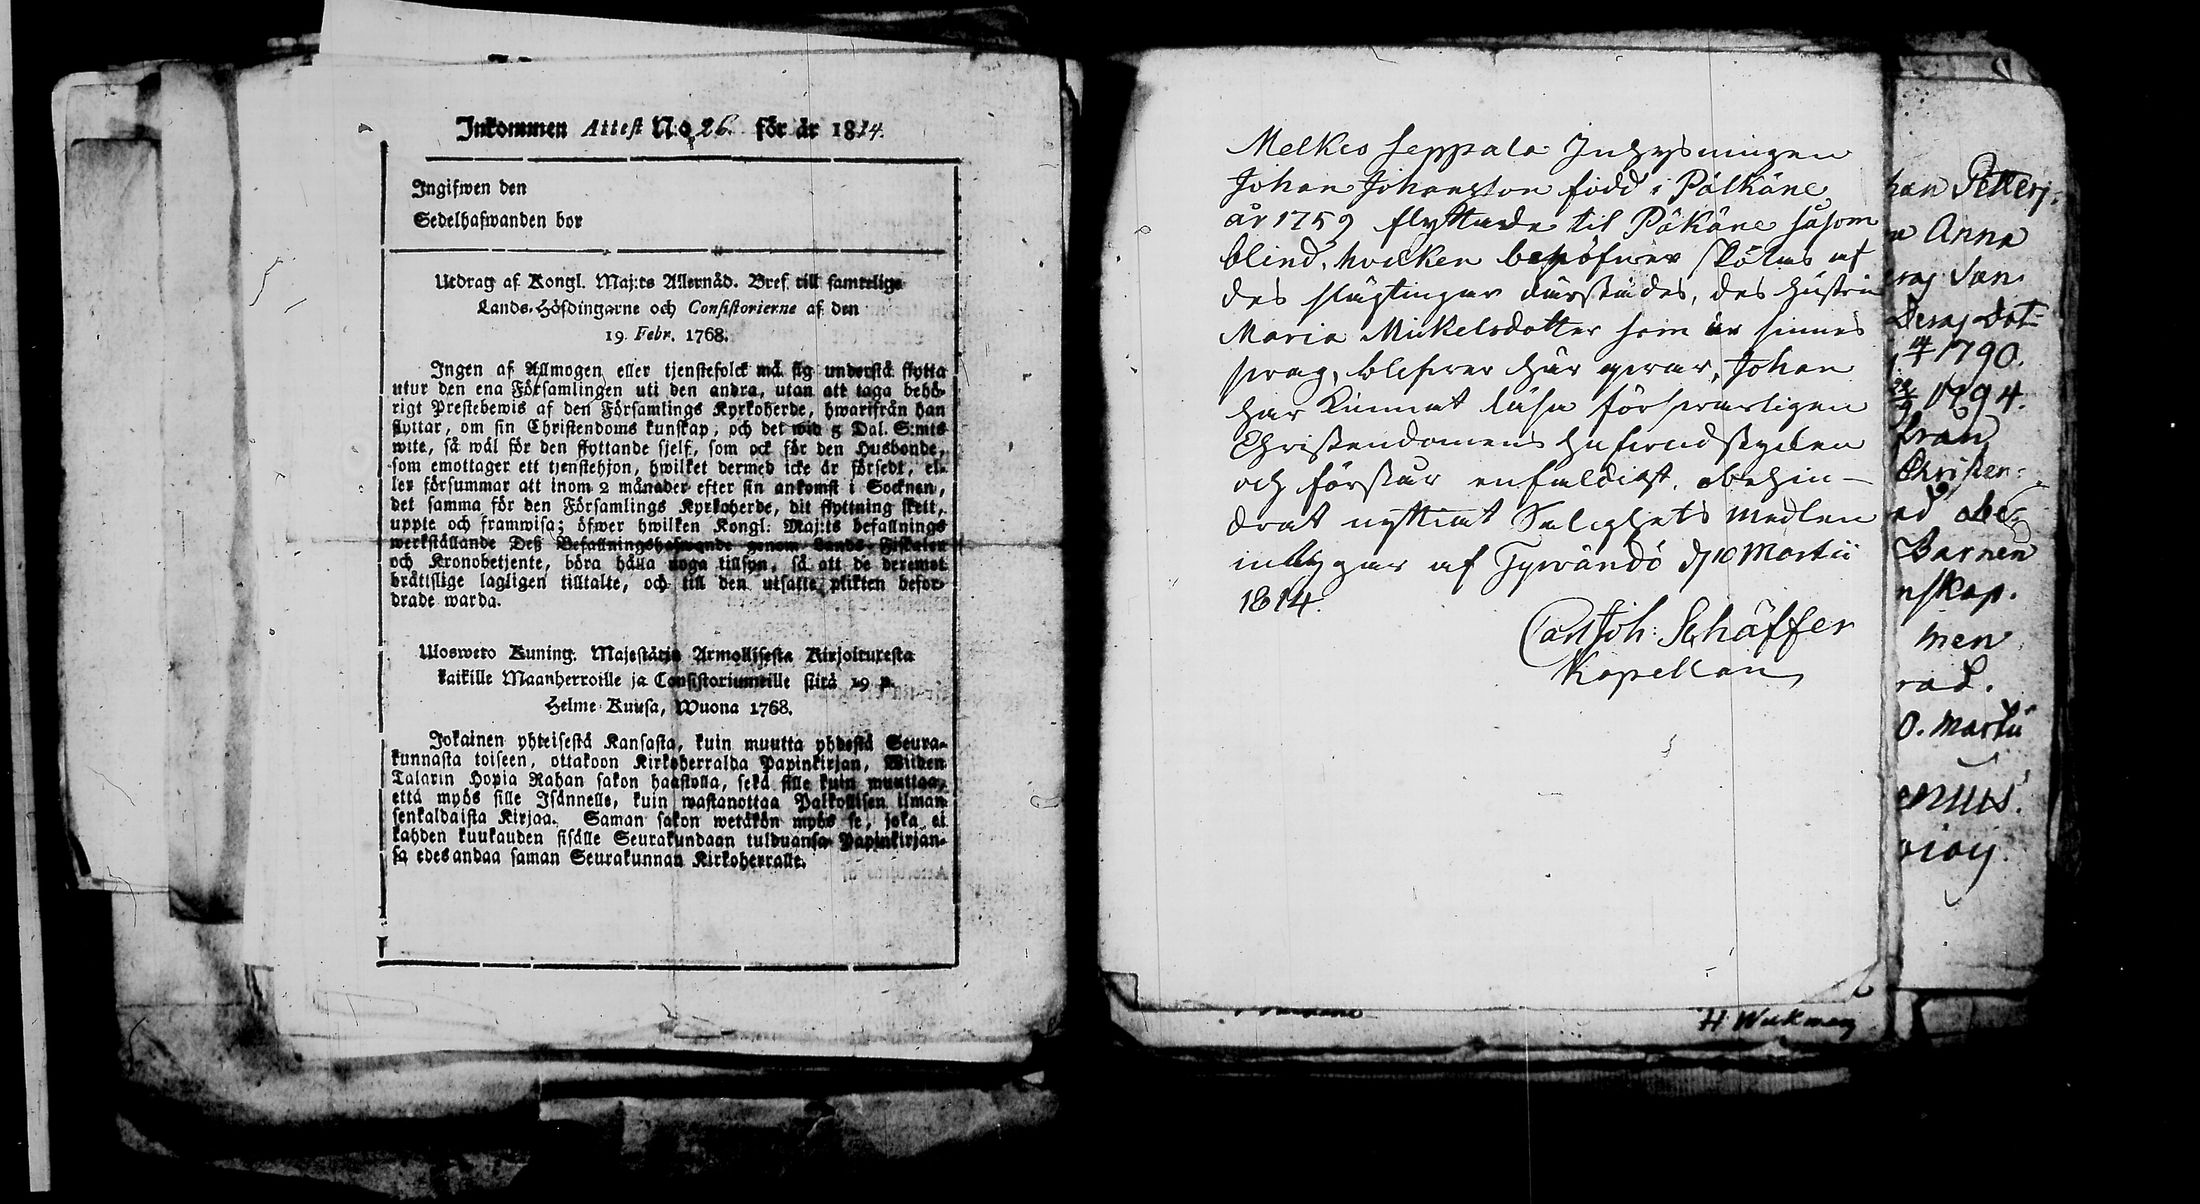 Inkommen Attest N:o 26. för år 1814.
Ingifwen den
Sedelhafwanden bor
Utdrag af Kongl. Maj:ts Allernåd. Bref till samtelige
Lands-Höfdingarne och Consistorierne af den
19 Febr. 1768.
Ingen af Allmogen eller tjenstefolck må sig understå flytta
utur den ena Församlingen uti den andra, utan att taga behö-
rigt Prestebewis af den Församlings Kyrkoherde, hwarifrån han
flyttar, om sin Christendoms kunskap, och det wid 5 Dal. S:mts
wite, så wäl för den flyttande sjelf, som ock för den Husbonde,
som emottager ett tjenstehjon, hwilket dermed icke är försedt, el-
ler försummar att inom 2 månader efter sin ankomst i Socknen,
det samma för den Församlings Kyrkoherde, dit flyttning skett,
uppte och framwisa; öfwer hwilken Kongl. Maj:ts befallnings
werkställande Deß Befallningshafwande genom Lands-Fiskalen
och Kronobetjente, böra hålla noga tillsyn, så att de deremot
bråttslige lagligen tilltalte, och till den utsatte plikten befor-
drade warda.
Ulosweto Kuning. Majestätin Armollisesta Kirjoituxesta
kaikille Maanherroille ja Consistoriumeille siitä 19 p.
Helme Kuusa, Wuona 1768.
Jokainen yhteisestä Kansasta, kuin muutta yhdestä Seura-
kunnasta toiseen, ottakoon Kirkoherralda Papinkirjan, Wiiden
Talarin Hopia Rahan sakon haastolla, sekä sille kuin muuttaa,
että myös sille Isännelle, kuin wastanottaa Palkollisen ilman
senkaldaista Kirjaa. Saman sakon wetäkön myös se, joka ei
kahden kuukauden sisälle Seurakundaan tulduansa Papinkirjan-
sa edesandaa saman Seurakunnan Kirkoherralle.
Melkio Seppala Inhysningen
Johan Johansson född i Pälkäne
år 1759 flyttade til Päkäne såsom
blind, hvilken behöfver skötas af
des slägtingar därstädes, des hustru
Maria Mickelsdotter som är sinnes
svag, blifver här qvar, Johan
har kunnat läsa försvarligen
Christendomens hufvudstycken
och förstår enfaldigt, obehin-
drat nyttiat Salighets medlen
intygar af Tyrvändö d 10 Martii
1814.
Carl Joh: Schäffer
Kapellan
han Petters:
a Anna
ras Son
Deras Dot-
14 1790.
1794.
från
Christen-
ed obe-
Barnen
nskap.
men
rad.
0. Martii